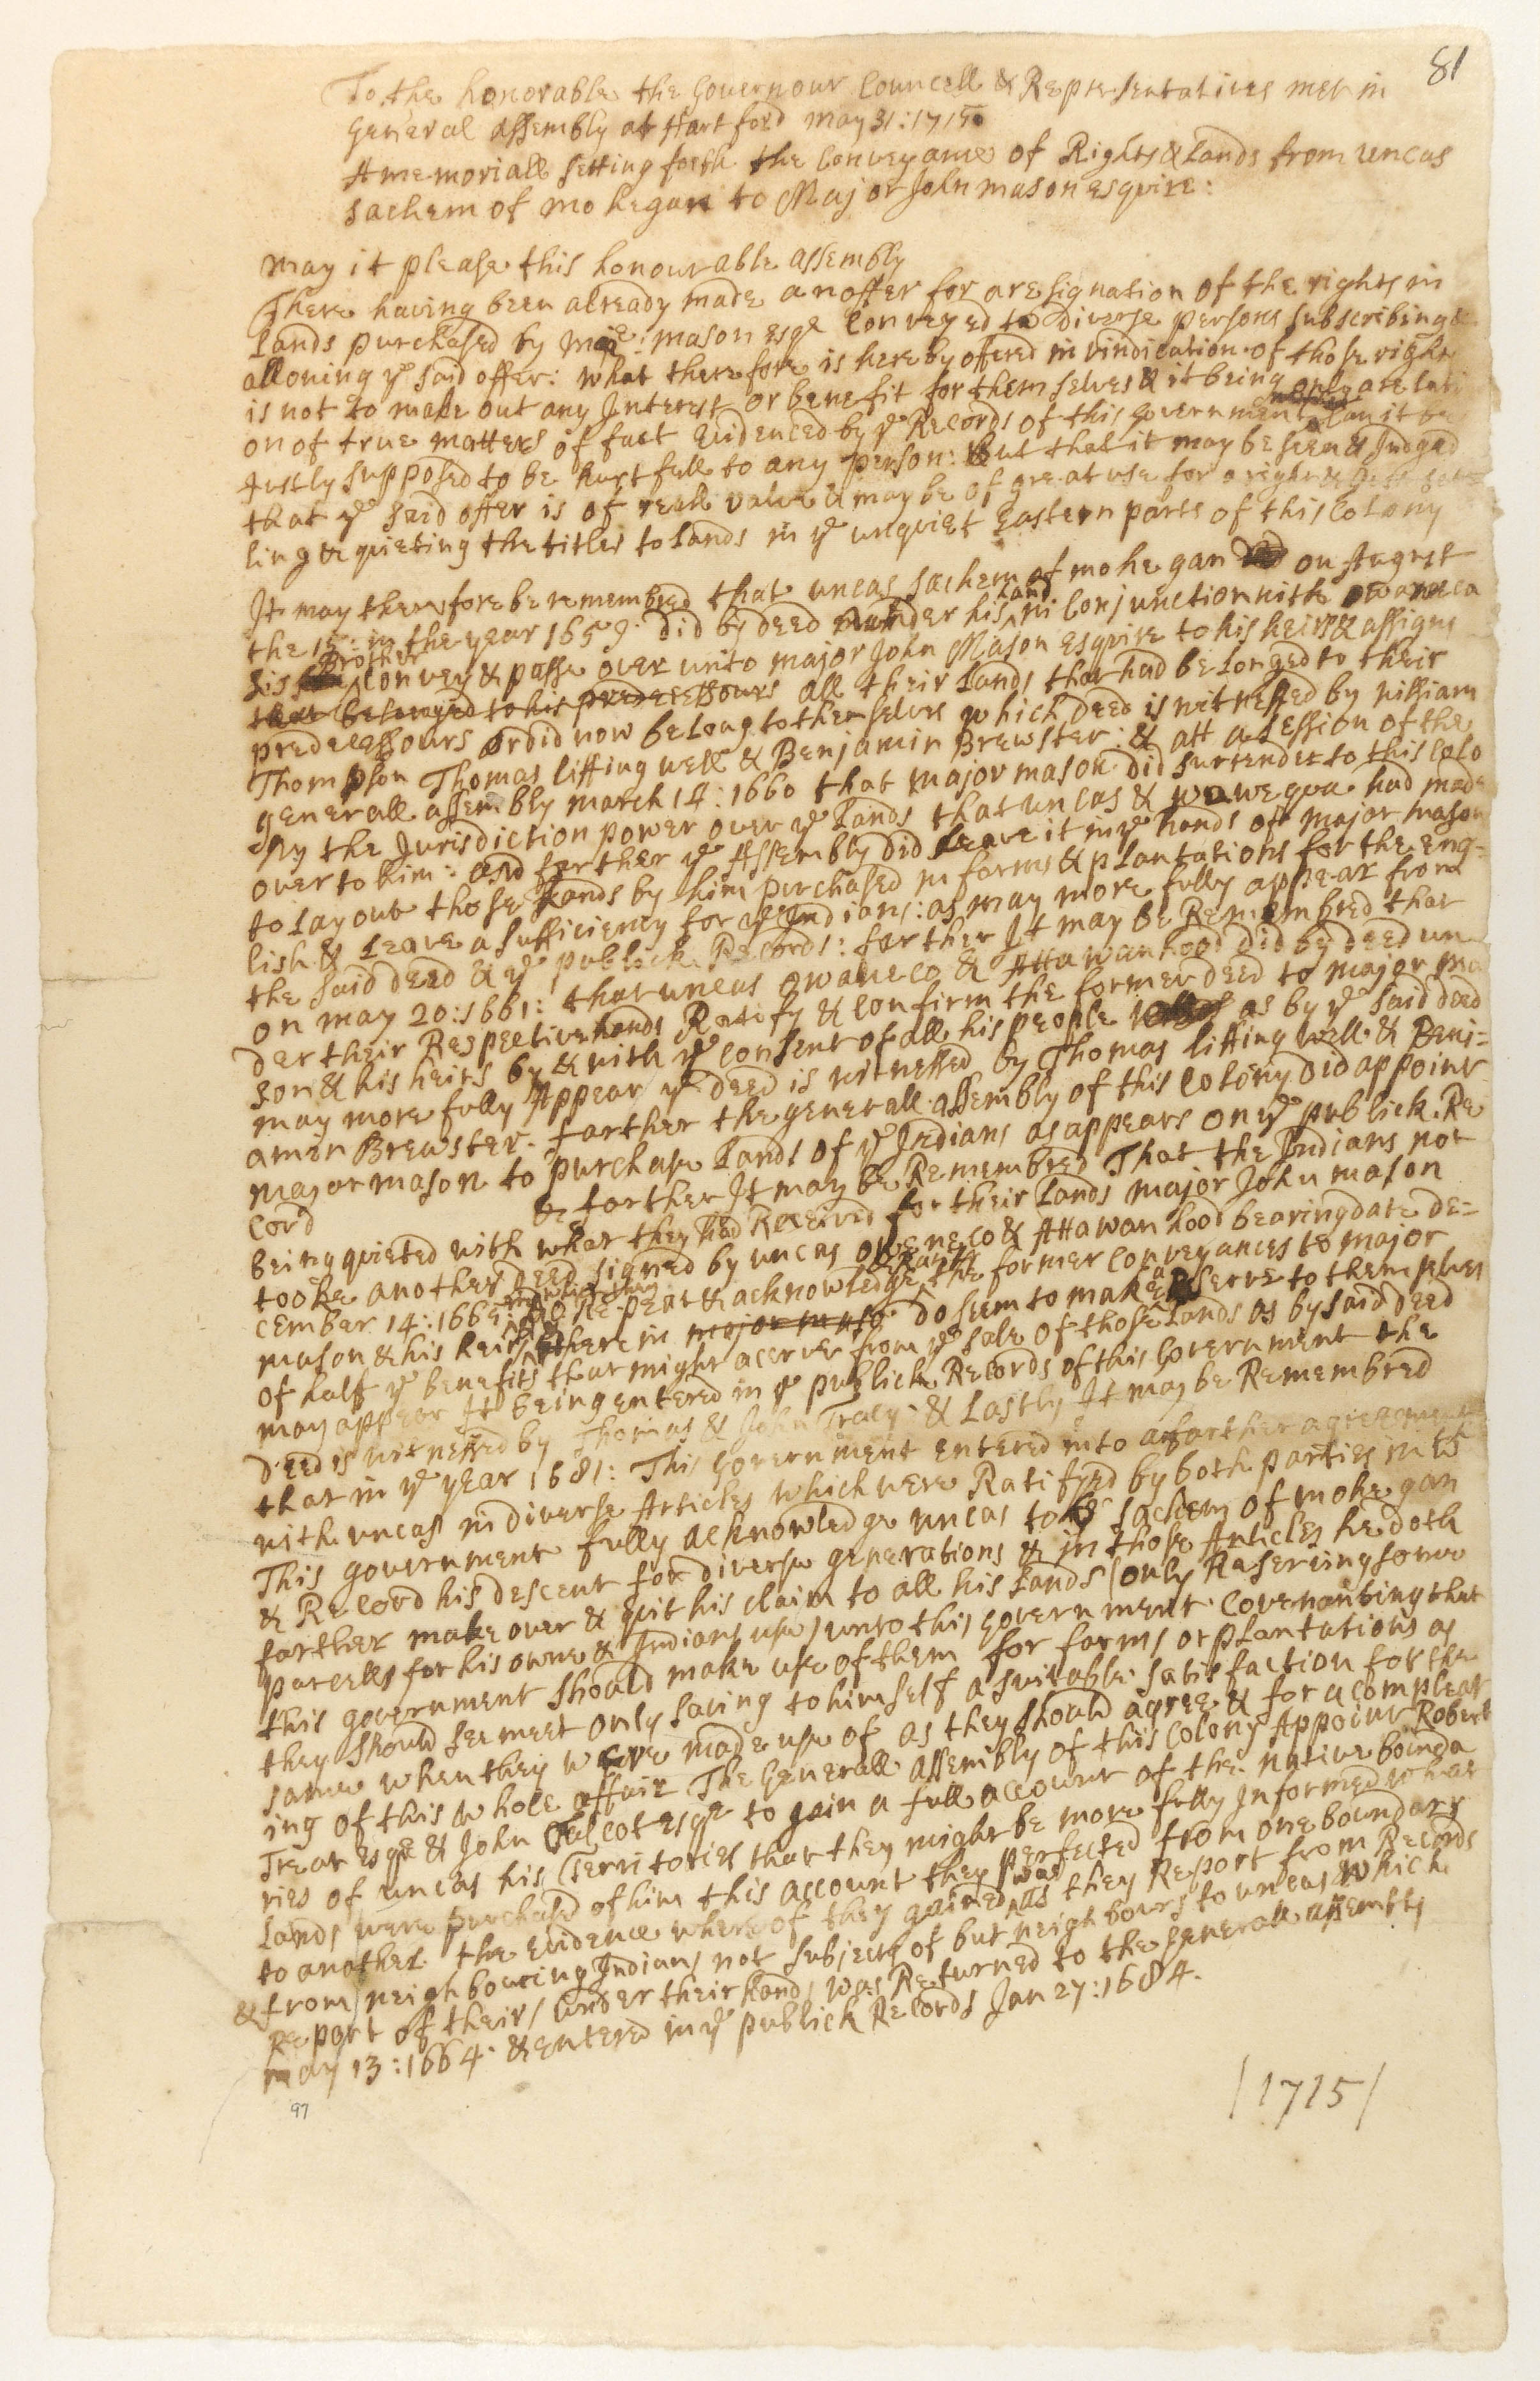 81
To the honorable the Governour Councell & Representatives met in
General Assembly at Hartford may 31: 1715
A memoriall setting forth the Conveyance of Rights & Lands from uncas
sachem of mohegan to Major John mason esquire:
may it please this honourable assembly
There having been already made an offer for a resignation of the rights in
Lands purchased by maj:r mason esqr Conveyed to diverse persons subscribing &
allowing ye said offer: what therefore is hereby offered in vindication of those rights
is not to make out any Interest or benefit for themselves & it being only a relati
on of true matters of fact Evidenced by ye Records of this government can it be
Justly supposed to be hurtfull to any person: But that it may be seen & Judged
that ye said offer is of reall value & may be of great use for a right &
ling & quieting the titles to Lands in ye unquiet Eastern parts of this Colony
It may therefore be remembred that uncas sachem of mohegan on August
the 15th: in the year 1659: did by deed under his hand in Conjunction with
his Brother Convey & passe over unto major John Mason Esquire to his heirs & assigns
that belonged to his predecessours all their Lands that had belonged to their
predecessours or did now belong to themselves which deed is witnessed by william
Thompson Thomas liffingwell & Benjamin Brewster: & att a session of the
generall assembly march 14: 1660 that major mason did surrender to this Colo
ny the Jurisdiction power over ye Lands that uncas & wawequa had made
over to him: and farther ye Assembly did leave it in ye hands of major mason
to lay out those Lands by him purchased in farms & plantations for the eng=
lish & leave a sufficiency for ye Indians: as may more fully appear from
the said deed & ye publick Records: farther It may be Remembred that
on may 20: 1661: that uncas owaneco & Attawanhood did by deed un
der their Respective hands Ratify & Confirm the former deed to major ma
son & his heirs by & with ye consent of all his people as by ye said deed
may more fully Appear ye deed is witnessed by Thomas liffingwell & Benj=
amin Brewster. farther the generall assembly of this Colony did appoint
major mason to purchase Lands of ye Indians as appears on ye publick Re
cord & farther It may be Remembred That the Indians not
being quieted with what they had Received for their Lands major John mason
tooke another deed signed by uncas oweneco & Attawanhood bearing date de=
cember 14: 1665 Repeat & acknowledge the former Conveyances to major
mason & his heirs & therein major maso do seem to make a Reserve to themselves
of half ye benefits that might accrue from ye sale of those Lands as by said deed
may appear It being entered in ye publick Records of this Government the
deed is witnessed by Thomas & John Tracy: & Lastly It may be Remembred
that in ye year 1681: This government entered into a farther agreement
with uncas in diverse Articles which were Ratifyed by both parties in ts
This government fully acknowledge uncas to be sachem of mohegan
& Record his descent for diverse generations & in those Articles he doth
farther make over & quit his claim to all his Lands (only Reserving some
parcells for his owne & Indians use) unto this government. Covenanting that
this government should make use of them for farms or plantations as
they should see meet only saving to himself a suitable satisfaction for the
same when they were made use of as they should agree & for a compleat
ing of this whole affair The Generall Assembly of this Colony Appoint Robert
Treat esqr & John Talcot esqr to gain a full account of the native bounda
ries of uncas his Territories that they might be more fully Informed what
Lands were purchased of him this account they perfected from one boundary
to another the evidence whereof they gained was as they Report from Records
& from neighbouring Indians not subjects of but neighbours to uncas which
Report of theirs under their hands was Returned to the generall assembly
may 13: 1664. & entered in ye publick Records Jan 27: 1684.
/1715/
97